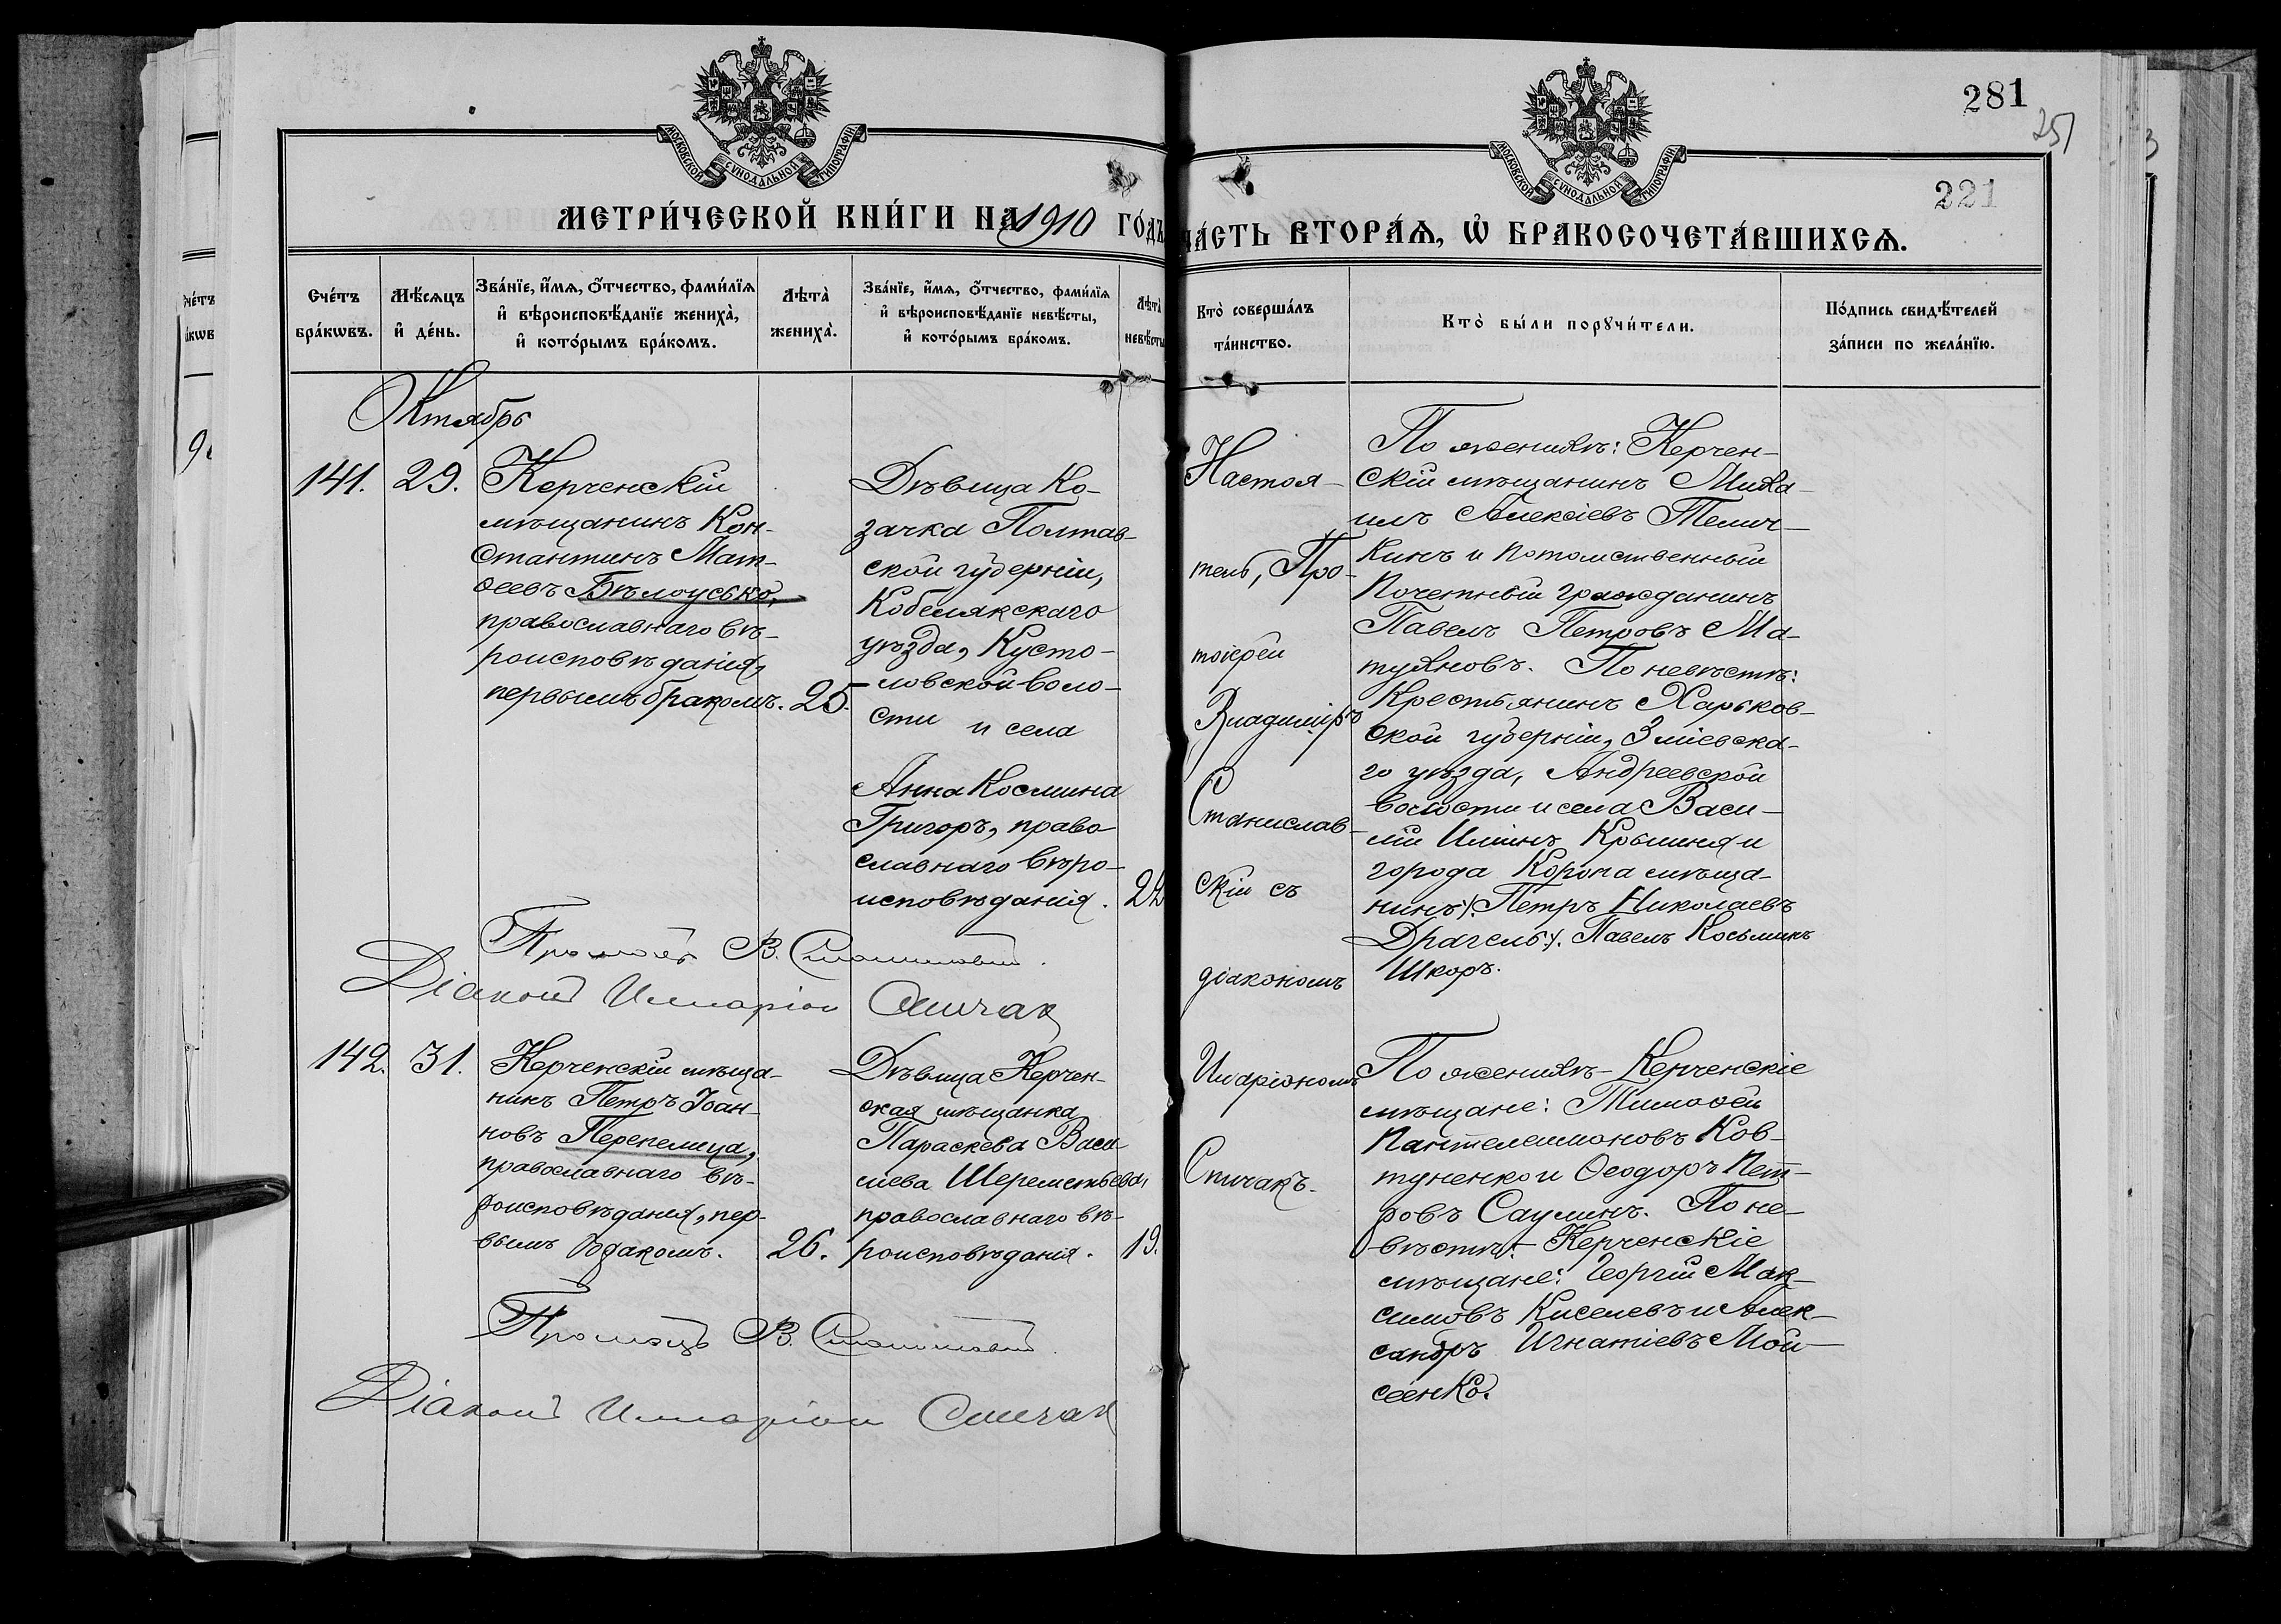 281
251
221
МОСКОВСКОЙ СѴНОДАЛЬНОЙ ТИПОГРАФІИ
МОСКОВСКОЙ СѴНОДАЛЬНОЙ ТИПОГРАФІИ
МЕТРИ́ЧЕСКОЙ КНИ́ГИ НА 1910 ГО́ДЪ
ЧА́СТЬ ВТОРА́Ѧ, Ѽ БРАКОСОЧЕТА́ВШИХСѦ.
Сче́тъ
бра́кѡвъ.
Мѣ́сѧцъ
и҆ де́нь.
Зва́нїе, и҆́мѧ, ѻ҆́тчество, фами́лїѧ
и҆ вѣроисповѣ́данїе жениха̀,
и҆ кото́рымъ бра́комъ.
Лѣта̀
жениха̀.
Зва́нїе, и҆́мѧ, ѻ҆́тчество, фами́лїѧ
и҆ вѣроисповѣ́данїе невѣ́сты,
и҆ кото́рымъ бра́комъ.
Лѣта̀
невѣ́сты
Кто̀ соверша́лъ
та́инство.
Кто̀ бы́ли порꙋчи́тели.
По́дпись свидѣ́телей
за́писи по жела́нїю.
Октябрь
141. 29.
Керченскій
мѣщанинъ Кон-
стантинъ Мат-
ѳеевъ Бѣлоусько,
православнаго вѣ-
роисповѣданія,
первымъ бракомъ. 25.
Дѣвица Ко-
зачка Полтав-
ской губерніи,
Кобелякскаго
уѣзда, Кусто-
ловской воло-
сти и села
Анна Космина
Григоръ, право
славнаго вѣро-
исповѣданія. 22
Настоя-
тель, Про-
тоіерей
Владиміръ
Станислав-
скій съ
діакономъ
Иларіономъ
Спичакъ.
По женихѣ: Керчен-
скій мѣщанинъ Миха-
илъ Алексіевъ Телич-
кинъ и потомственный
Почетный гражданинъ
Павелъ Петровъ Ма-
туяновъ. По невѣстѣ:
Крестьянинъ Харьков-
ской губерніи, Зміевска-
го уѣзда, Андреевской
волости и села Васи-
лій Ильинъ и
города Коропа мѣща-
нинъ Петръ Николаевъ
Драгель Павелъ Косьминъ
Шкоръ.
Протоіерей В. Станиславскій.
Діаконъ Илларіонъ Спичак
142. 31.
Керченскій мѣща-
нинъ Петръ Іоан-
новъ Перепелица,
православнаго вѣ-
роисповѣданія, пер-
вымъ бракомъ. 26.
Дѣвица Керчен-
ская мѣщанка
Параскева Васи
лиева Шереметьева,
православнаго вѣ-
роисповѣданія. 19.
По женихѣ - Керченскіе
мѣщане: Тимоѳей
Пантелеимоновъ Ков-
туненко и Ѳеодоръ Пет-
ровъ Саулинъ. По не-
вѣстѣ: - Керченскіе
мѣщане: Георгій Мак-
симовъ Киселевъ и Алек-
сандръ Игнатіевъ Мои-
сеенко.
Протоіерей В. Станиславскій.
Діаконъ Илларіонъ Спичак